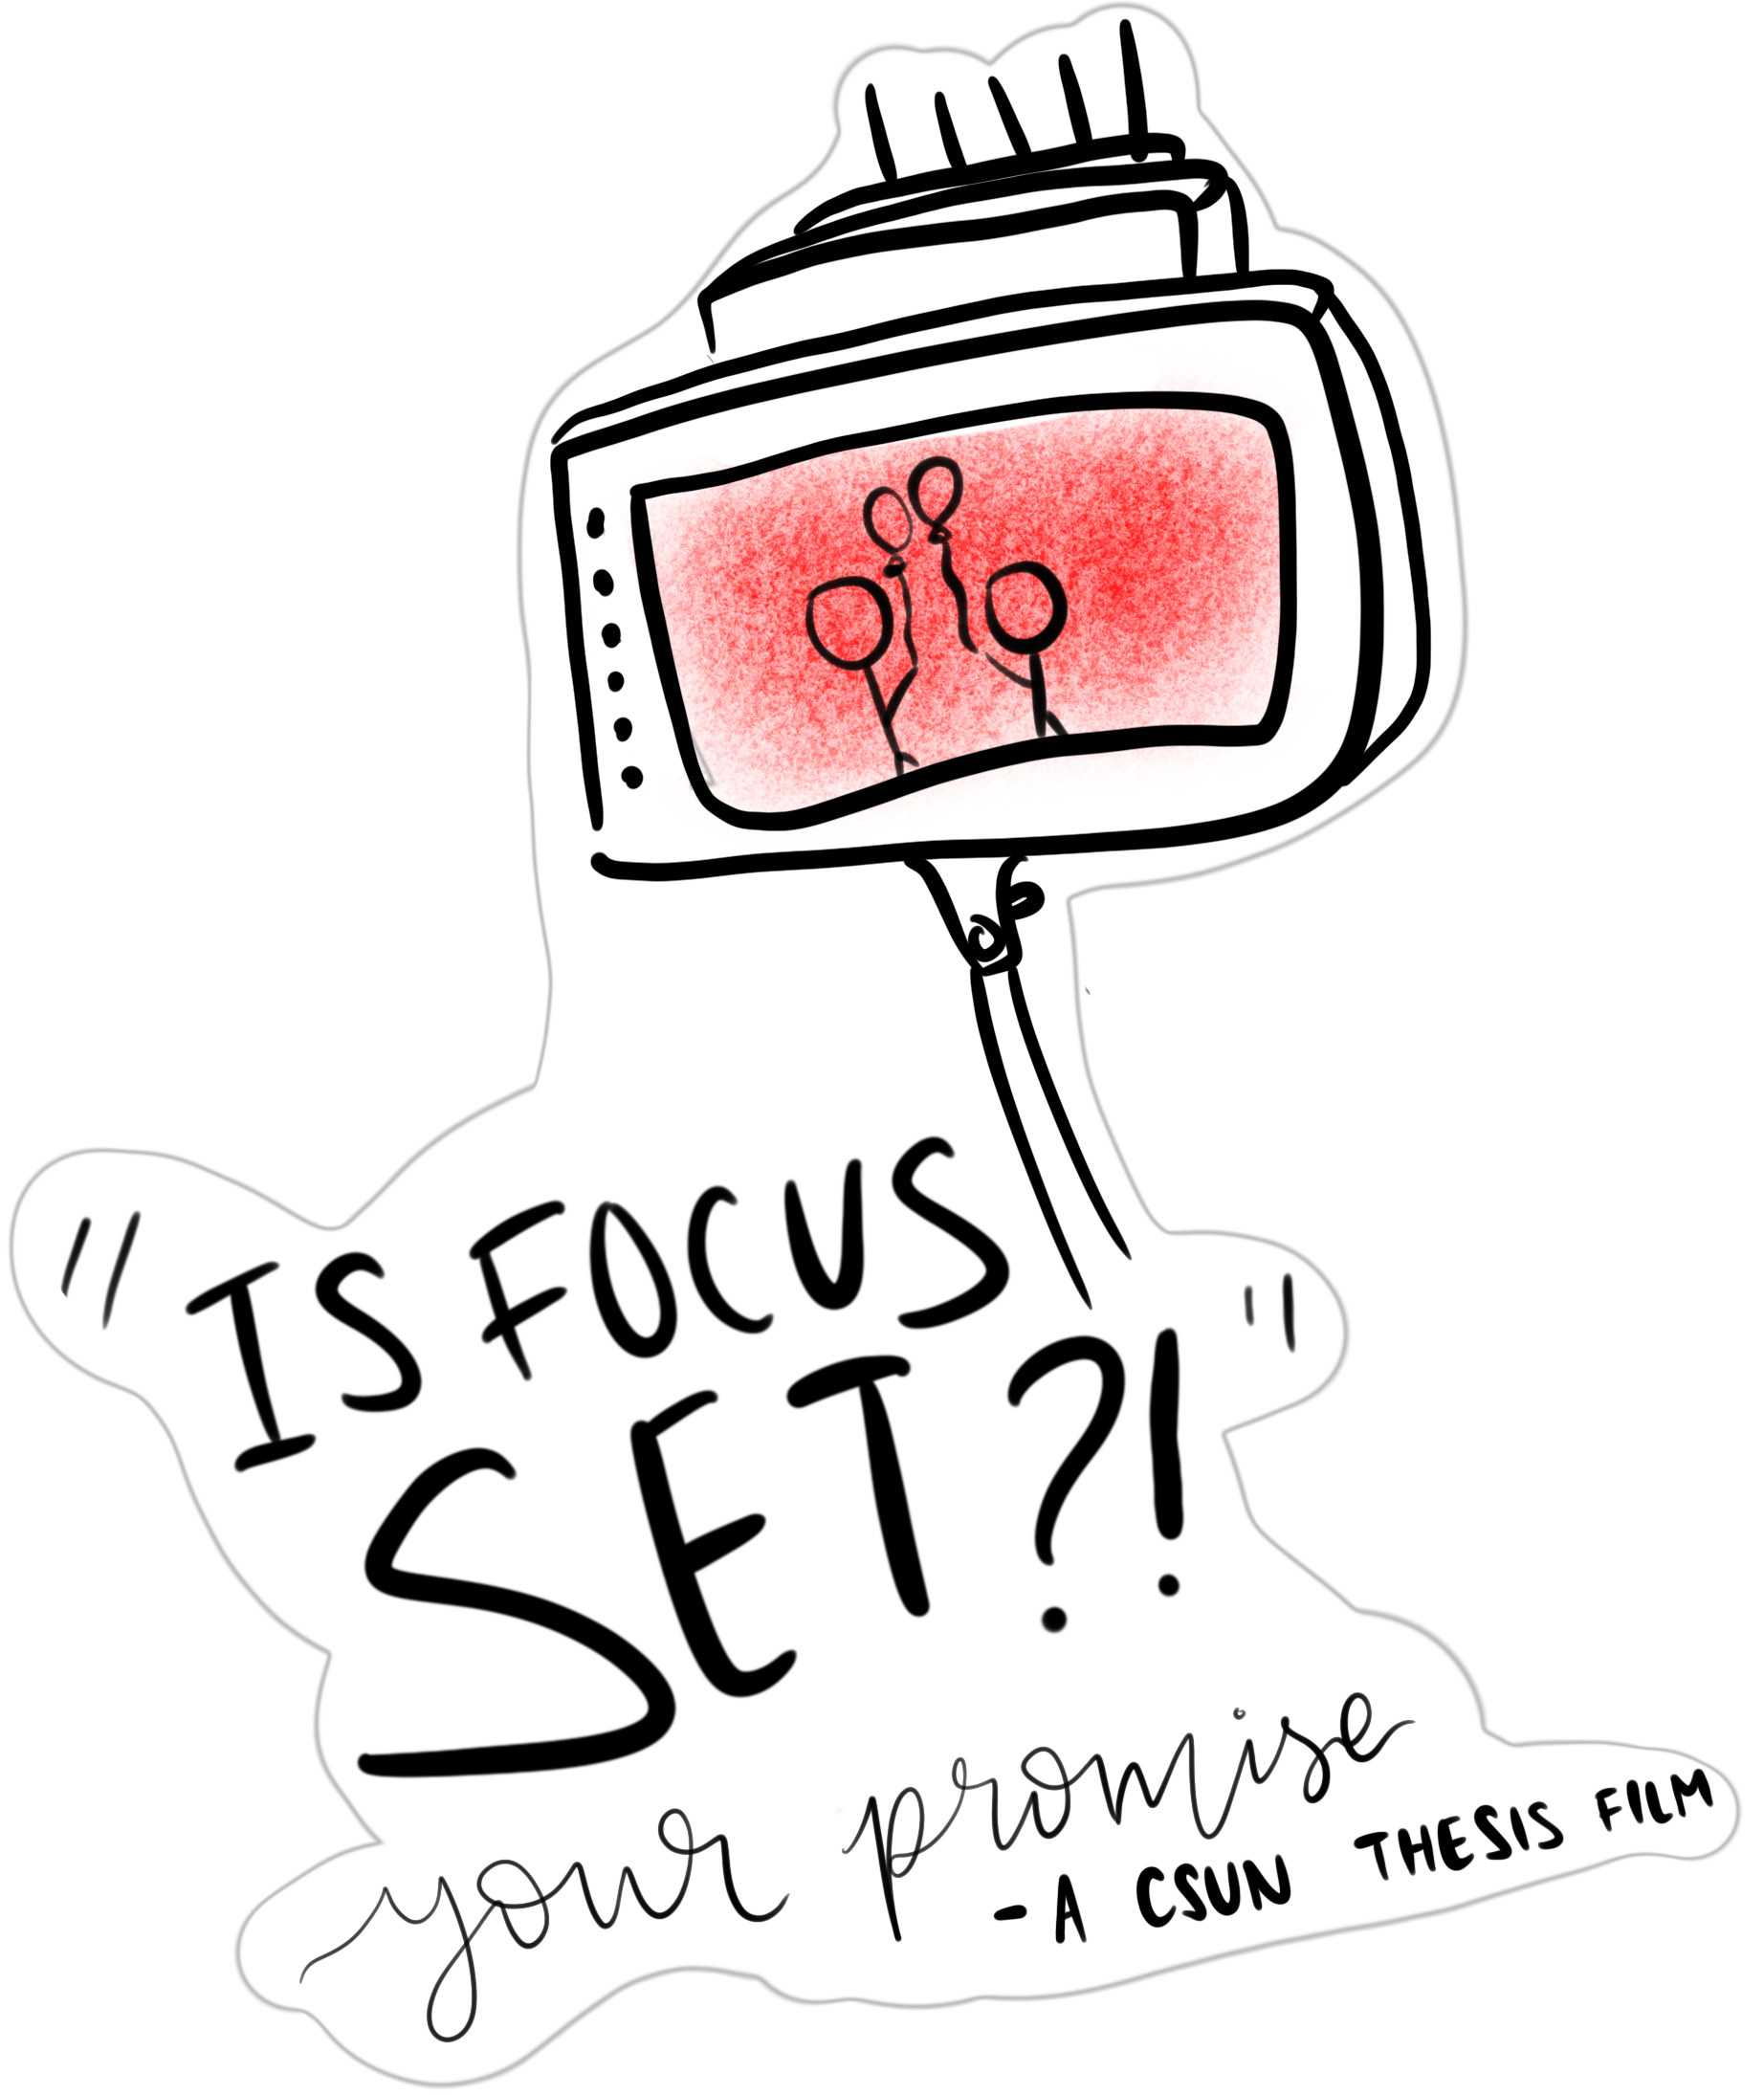 "IS FOCUS
SET?!"
your promise
-A CSUN THESIS FILM